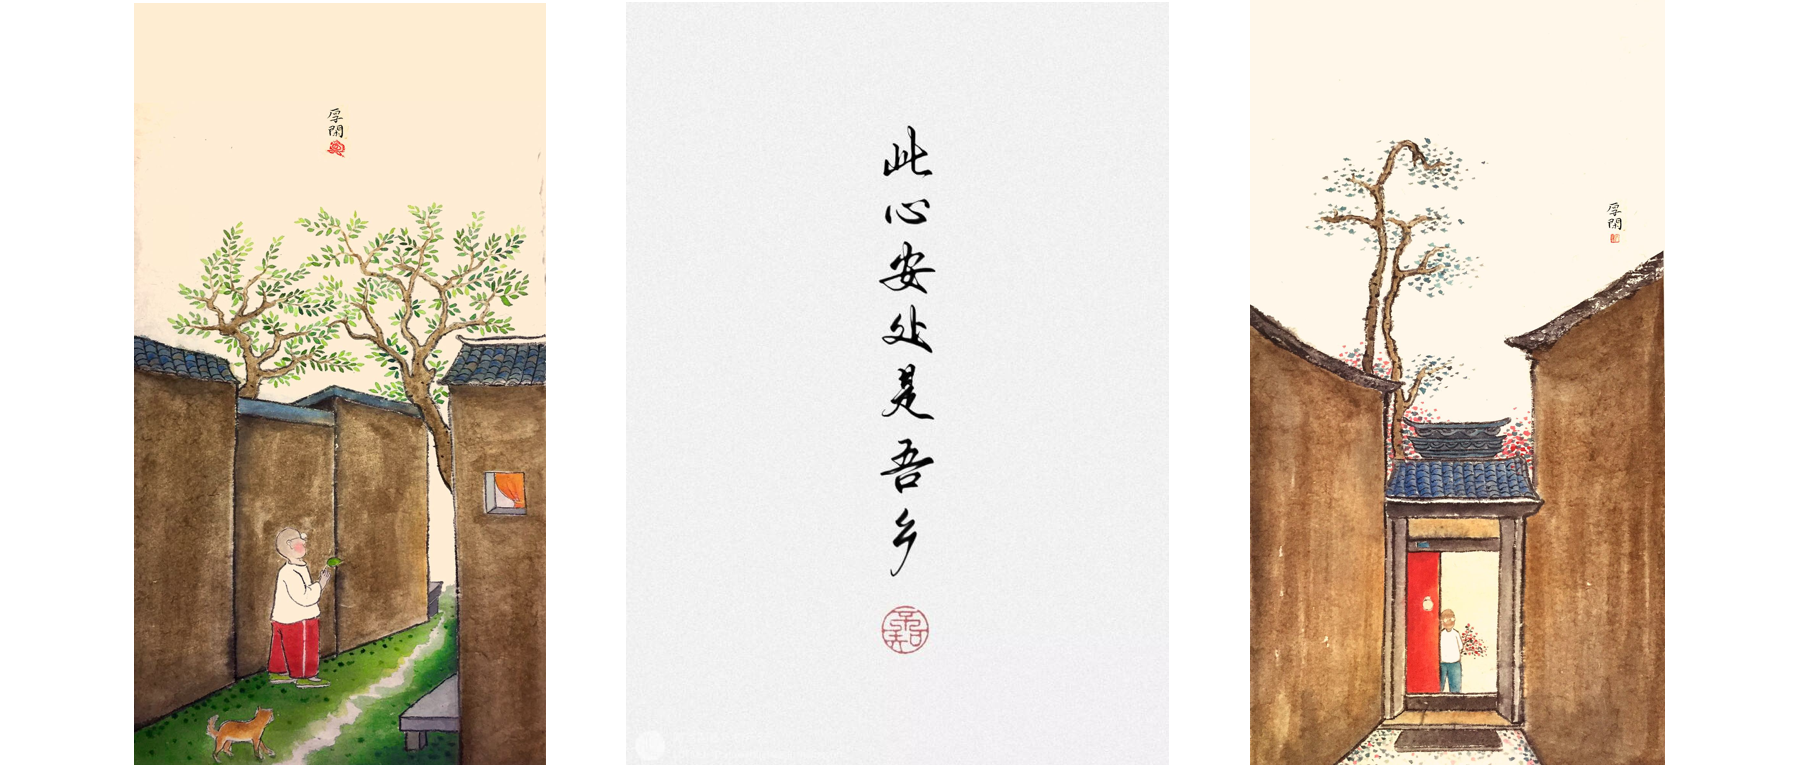 厚閑
此心安处是吾乡
厚閑